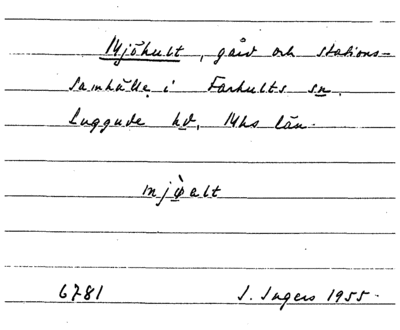 Mjöhult, gård och stations-
samhälle i Farhults sn.
Luggude hd, Mhs län.
mjὼalt
6781 I. Ingers 1955.